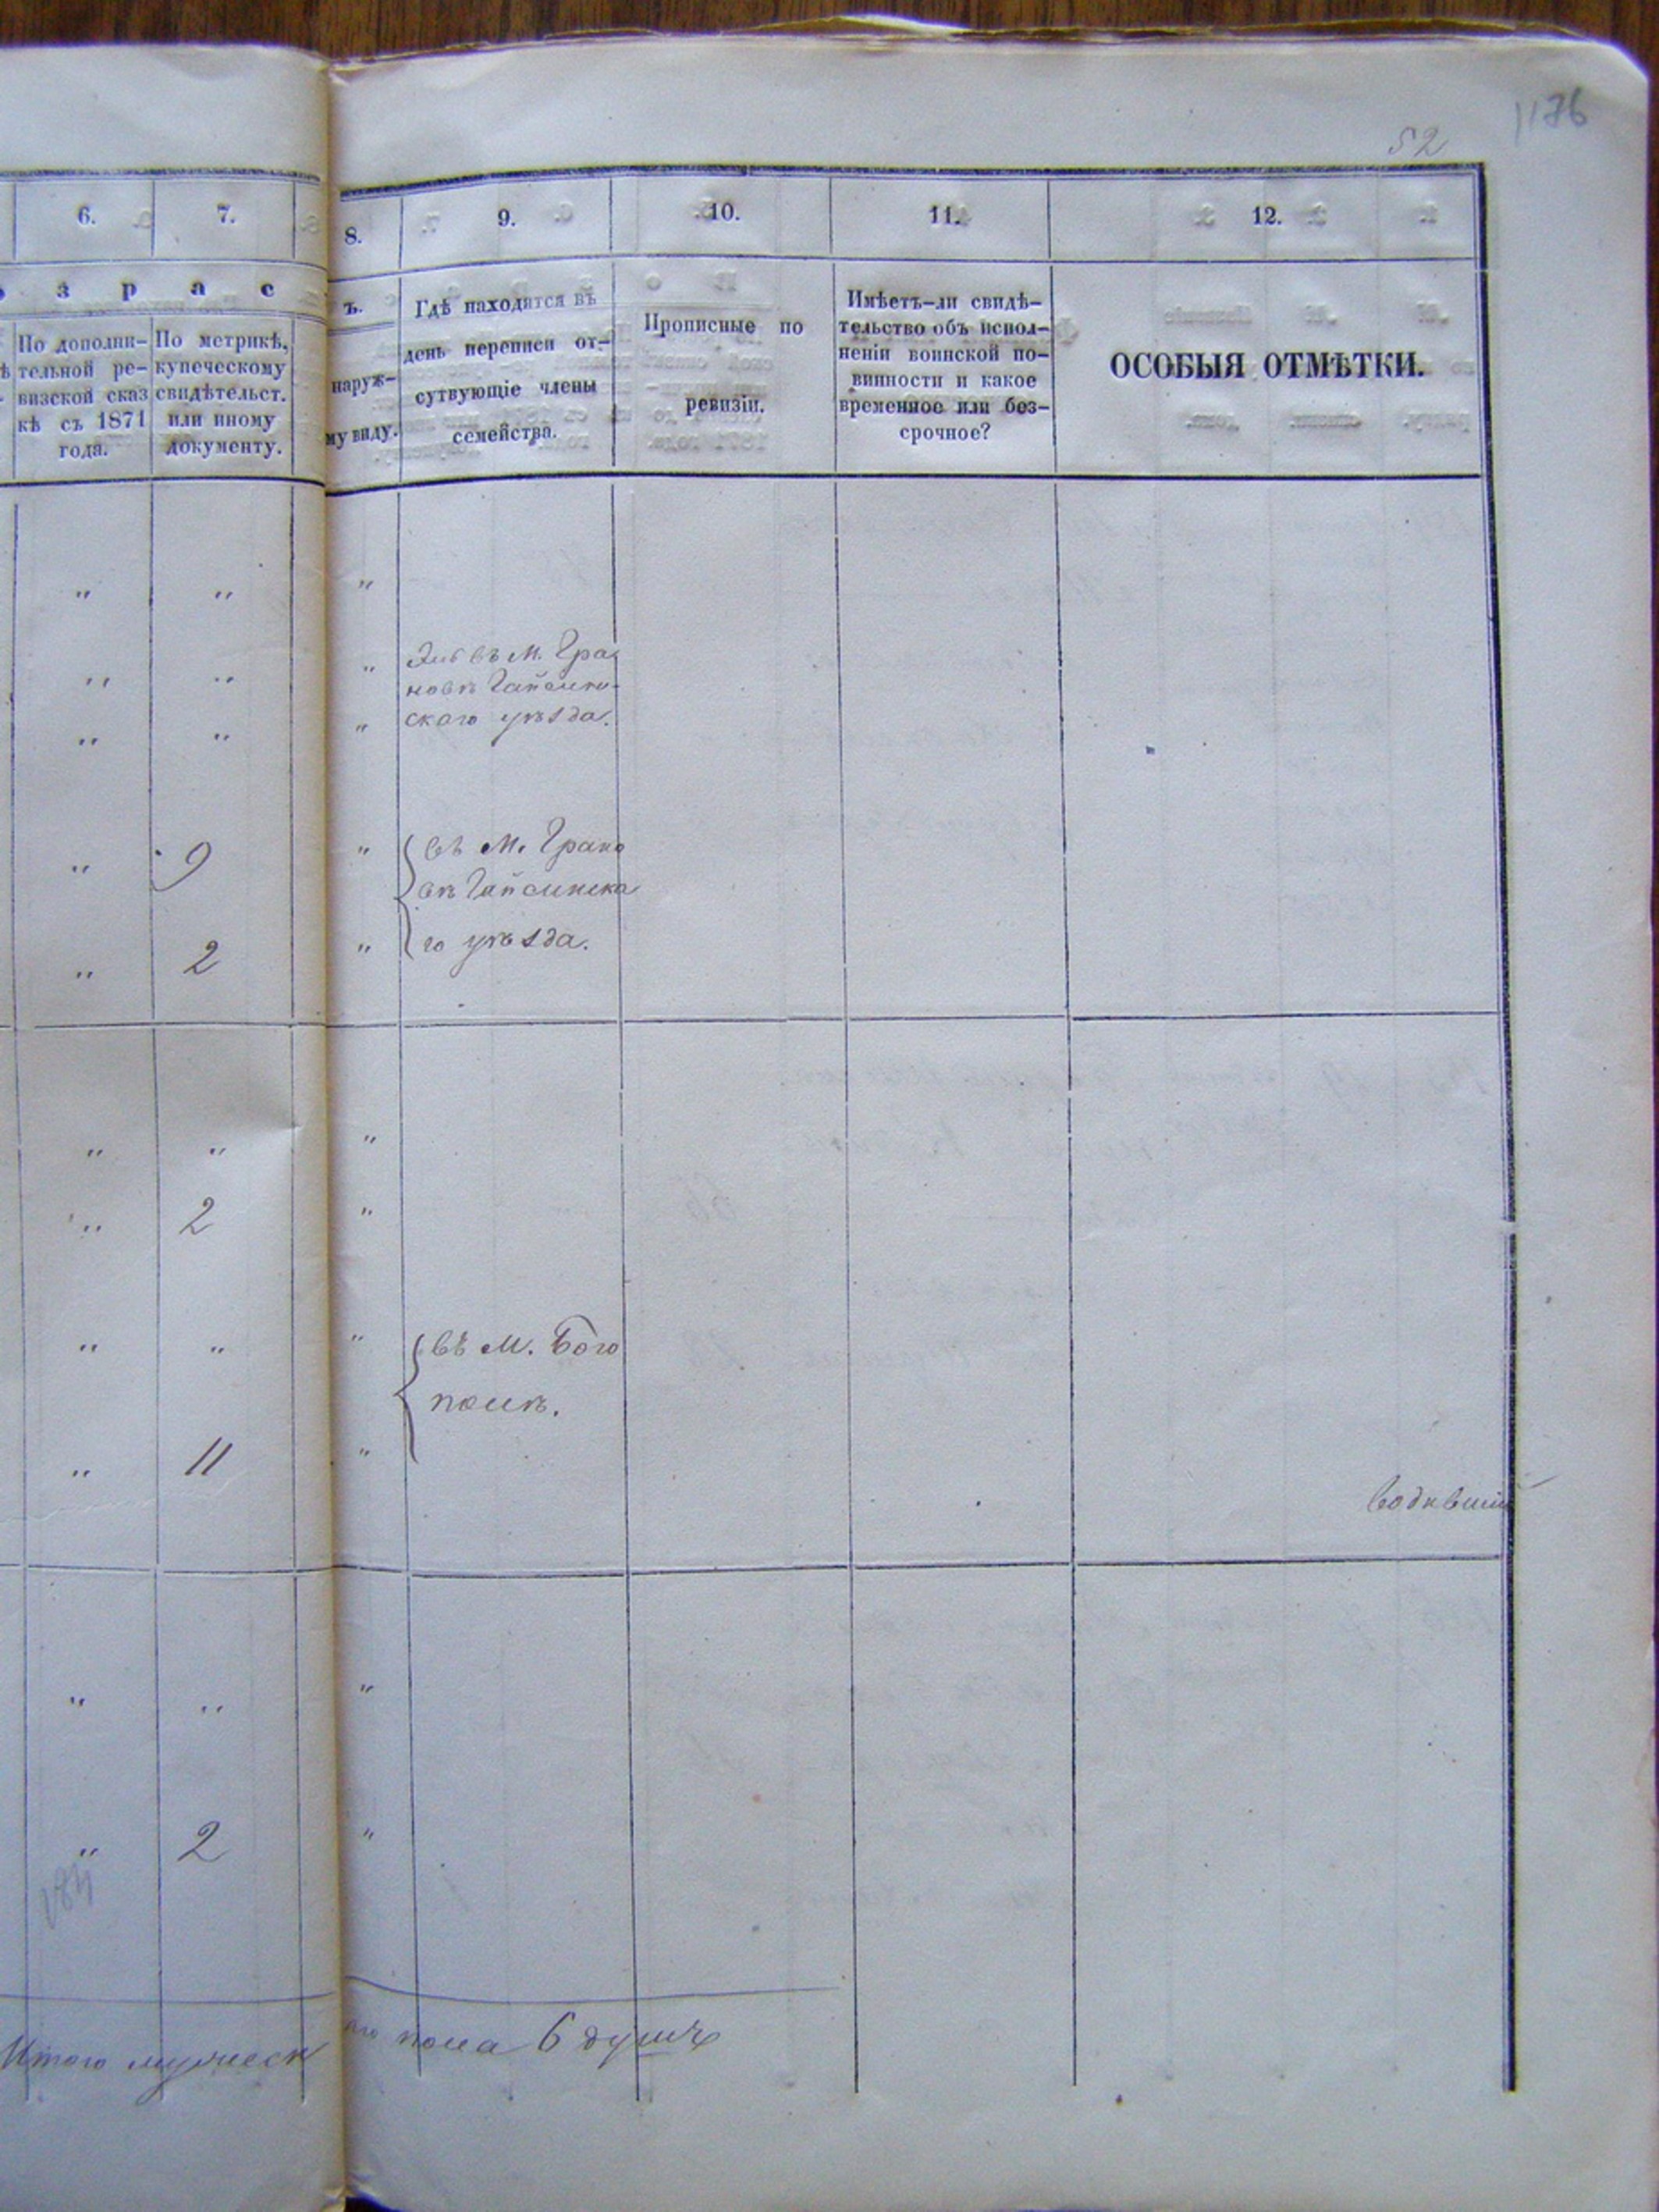 1176
52
6. 7. 8. 9. 10. 11. 12.
з р а с ъ.
По дополни-
тельной ре-
визской сказ
кѣ съ 1871
года.
По метрикѣ,
купеческому
свидѣтельст.
или иному
документу.
наруж-
му виду.
Гдѣ находятся въ
день переписи от-
сутвующіе члены
семейства.
Прописные по
ревизіи.
Имѣетъ-ли свидѣ-
тельство объ испол-
неніи воинской по-
винности и какое
временное или без-
срочное?
ОСОБЫЯ ОТМѢТКИ.
" " "
" " " въ М. Гра
новкѣ Гайсин-
" " " скаго уѣзда.
" 9 " въ М. Грано
вкѣ Гайсинска
" 2 " го уѣзда.
" " "
" 2 "
" " " въ М. Бого
полѣ.
" 11 "
" " "
" 2 "
Итого мужеск
аго пола 6 душъ